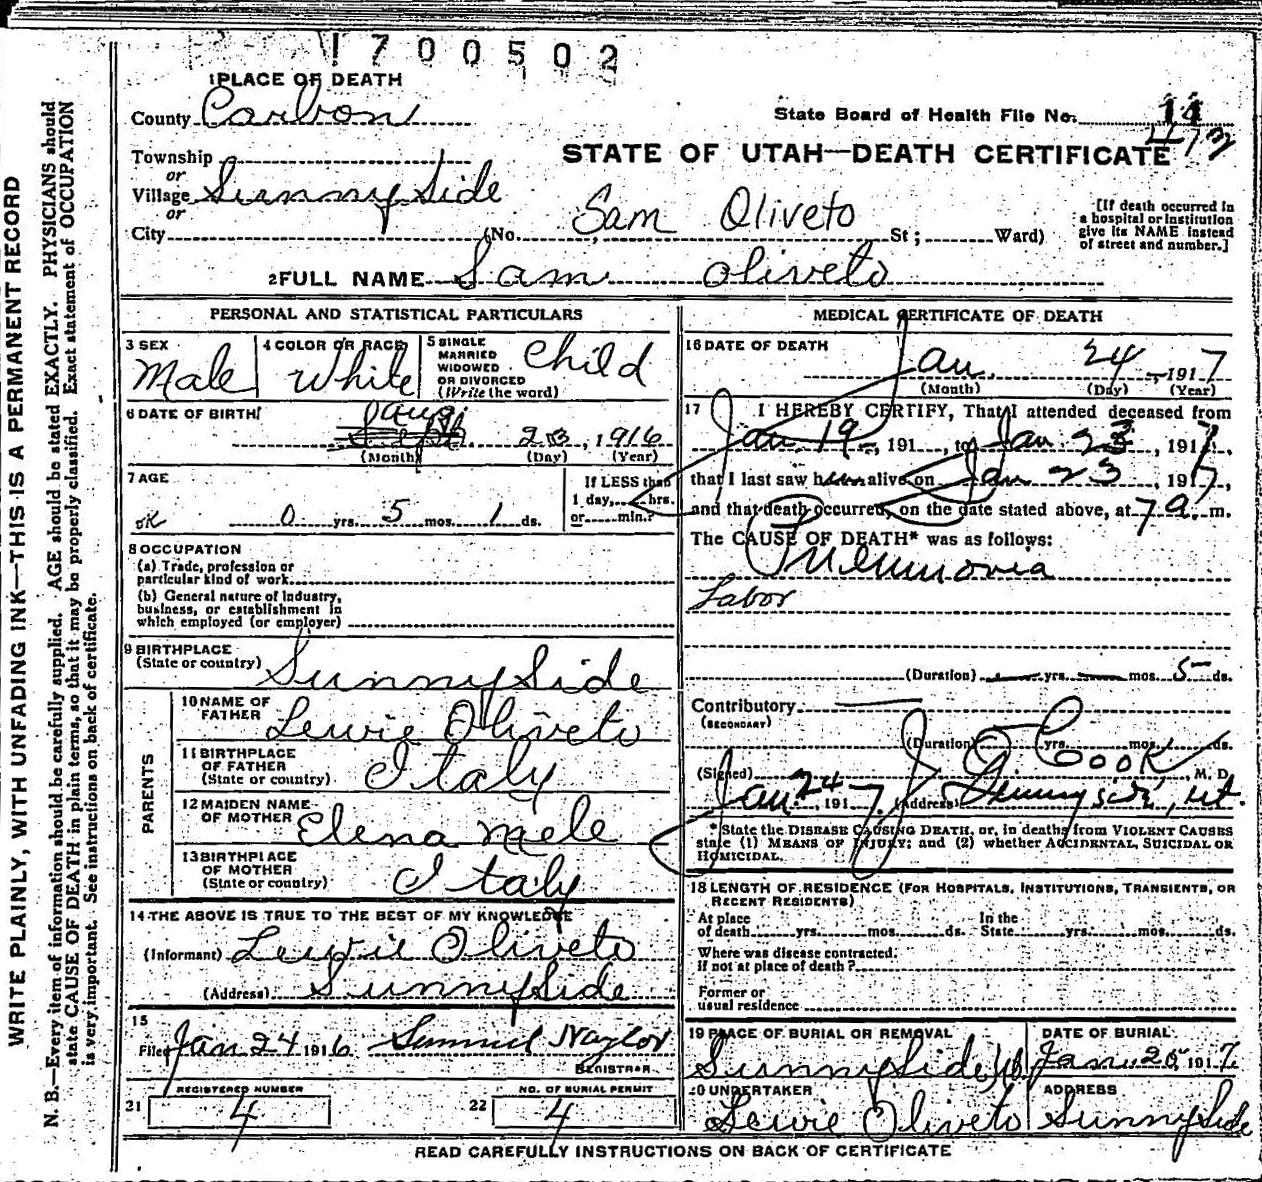 1700502
1 PLACE OF DEATH
County Carbon
State Board of Health File No. 14
473
Township
or
STATE OF UTAH—DEATH CERTIFICATE
Village SunnySide
or
City (No. Sam Oliveto St; Ward)
[If death occurred in
a hospital or institution
give its NAME instead
of street and number.]
2 FULL NAME Sam Oliveto
WRITE PLAINLY, WITH UNFADING INK—THIS IS A PERMANENT RECORD
N. B.—Every item of information should be carefully supplied. AGE should be stated EXACTLY. PHYSICIANS should
state CAUSE OF DEATH in plain terms, so that it may be properly classified. Exact statement of OCCUPATION
is very important. See instructions on back of certificate.
PERSONAL AND STATISTICAL PARTICULARS
3 SEX
Male
4 COLOR OR RACE
White
5 SINGLE
MARRIED
WIDOWED
OR DIVORCED
(Write the word)
Child
6 DATE OF BIRTH
Aug
23, 1916
(Month) (Day) (Year)
7 AGE
OK 0 yrs. 5 mos. 1 ds.
If LESS than
1 day, hrs.
or min.?
8 OCCUPATION
(a) Trade, profession or
particular kind of work
(b) General nature of Industry,
business, or establishment in
which employed (or employer)
9 BIRTHPLACE
(State or country) SunnySide
PARENTS
10 NAME OF
FATHER Lewie Oliveto
11 BIRTHPLACE
OF FATHER
(State or country) Italy
12 MAIDEN NAME
OF MOTHER Elena Mele
13 BIRTHPLACE
OF MOTHER
(State or country) Italy
14 THE ABOVE IS TRUE TO THE BEST OF MY KNOWLEDGE
(Informant) Lewie Oliveto
(Address) SunnySide
15
Filed Jan 24 1916 Samuel Naylor
REGISTRAR
REGISTERED NUMBER
21 4
NO. OF BURIAL PERMIT
22 4
MEDICAL CERTIFICATE OF DEATH
16 DATE OF DEATH
Jan. 24, 1917
(Month) (Day) (Year)
17 I HEREBY CERTIFY, That I attended deceased from
Jan. 19, 191 , to Jan 23, 1917,
that I last saw him alive on Jan 23, 1917,
and that death occurred, on the date stated above, at 7 a. m.
The CAUSE OF DEATH* was as follows:
Pneumonia
Lobar
(Duration) yrs. mos. 5 ds.
Contributory
(SECONDARY)
(Duration) yrs. mos. ds.
(Signed) Cook, M. D.
Jan. 24, 1917. (Address) Sunnyside, Ut.
*State the DISEASE CAUSING DEATH, or, in deaths from VIOLENT CAUSES
state (1) MEANS OF INJURY; and (2) whether ACCIDENTAL, SUICIDAL OR
HOMICIDAL.
18 LENGTH OF RESIDENCE (FOR HOSPITALS, INSTITUTIONS, TRANSIENTS, OR
RECENT RESIDENTS)
At place
of death yrs. mos. ds.
In the
State yrs. mos. ds.
Where was disease contracted,
if not at place of death?
Former or
usual residence
19 PLACE OF BURIAL OR REMOVAL
SunnySide
DATE OF BURIAL
Jan. 25 1917
20 UNDERTAKER
Lewie Oliveto
ADDRESS
SunnySide
READ CAREFULLY INSTRUCTIONS ON BACK OF CERTIFICATE